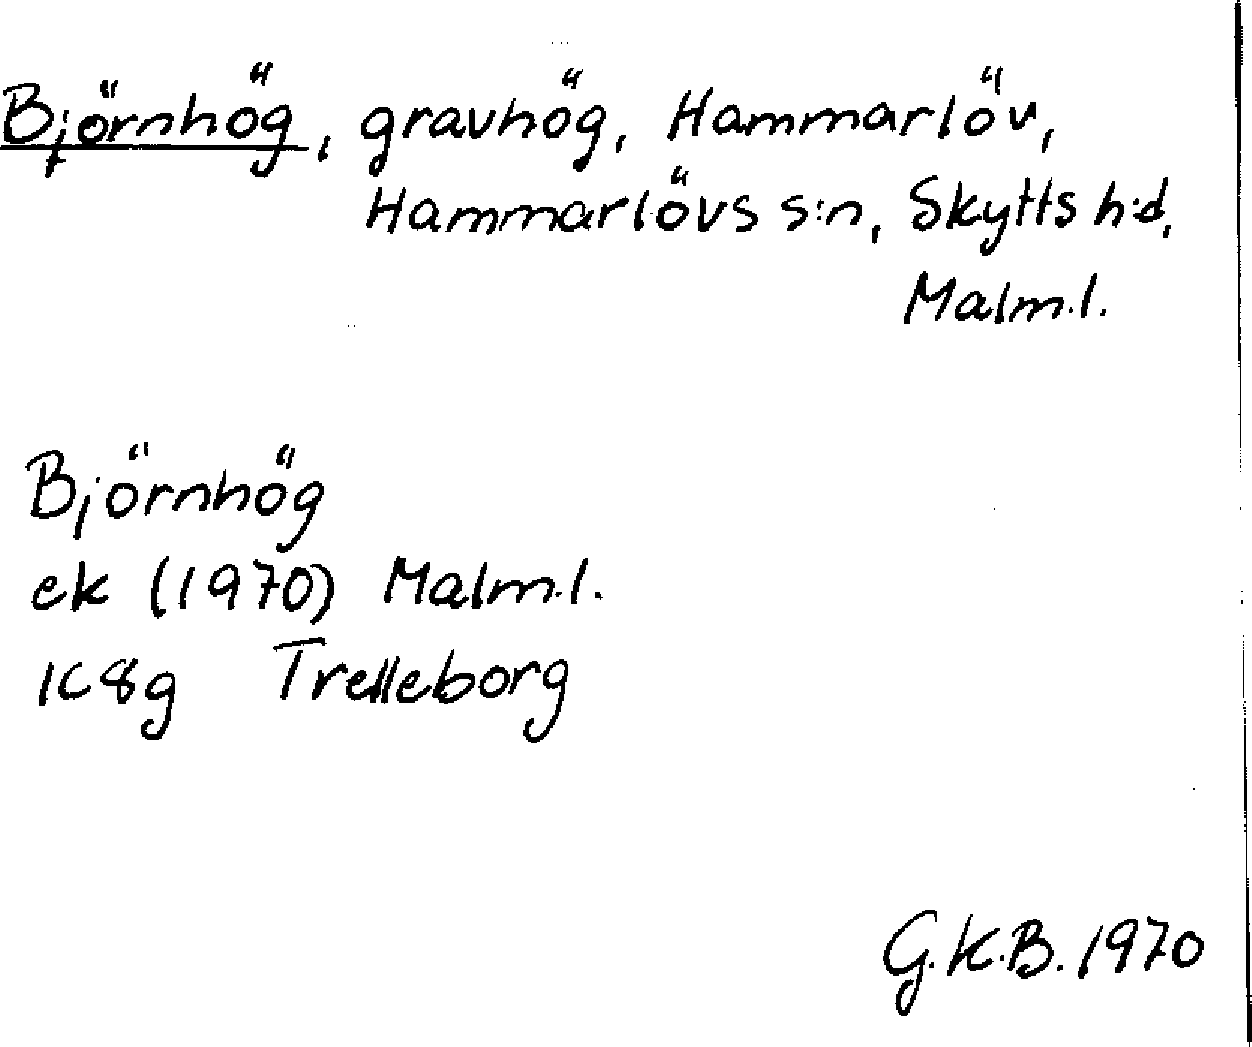 Björnhög, gravhög, Hammarlöv,
Hammarlövs s:n, Skytts h:d,
Malm.l.
Björnhög
ek (1970) Malm.l.
1C8g Trelleborg
G.K.B. 1970